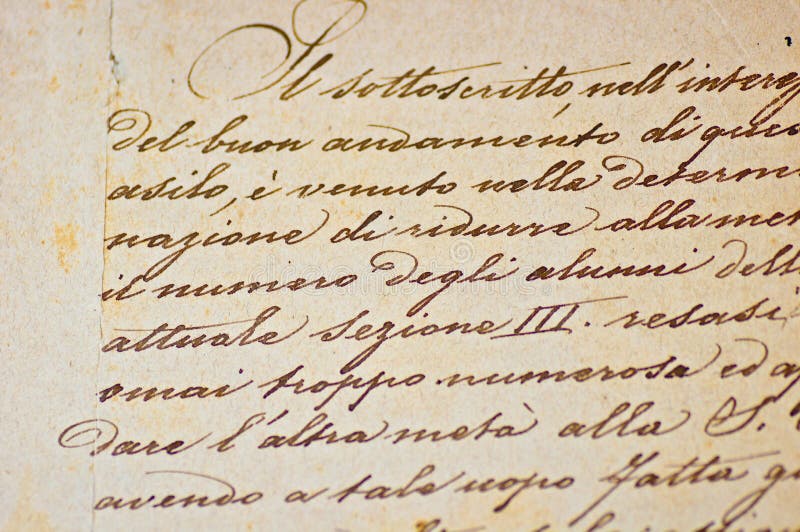 Il sottoscritto, nell'interes
del buon andamento di ques
asilo, è venuto nella determi
nazione di ridurre alla met
il numero degli alunni dell
attuale Sezione III. resasi
omai troppo numerosa ed af
dare l'altra metà alla S.
avendo a tale uopo fatta g